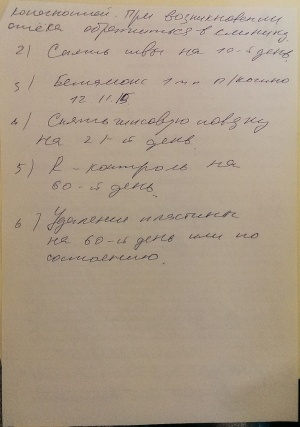 конечностей. При возникновении
отека обратиться в клинику.
2) Снять швы на 10-й день
3) Бетамокс 1 мл п/кожно
12 11 15
4) Снять гипсовую повязку
на 21-й день.
5) R-контроль на
60-й день.
6) Удаление пластины
на 60-й день или по
состоянию.